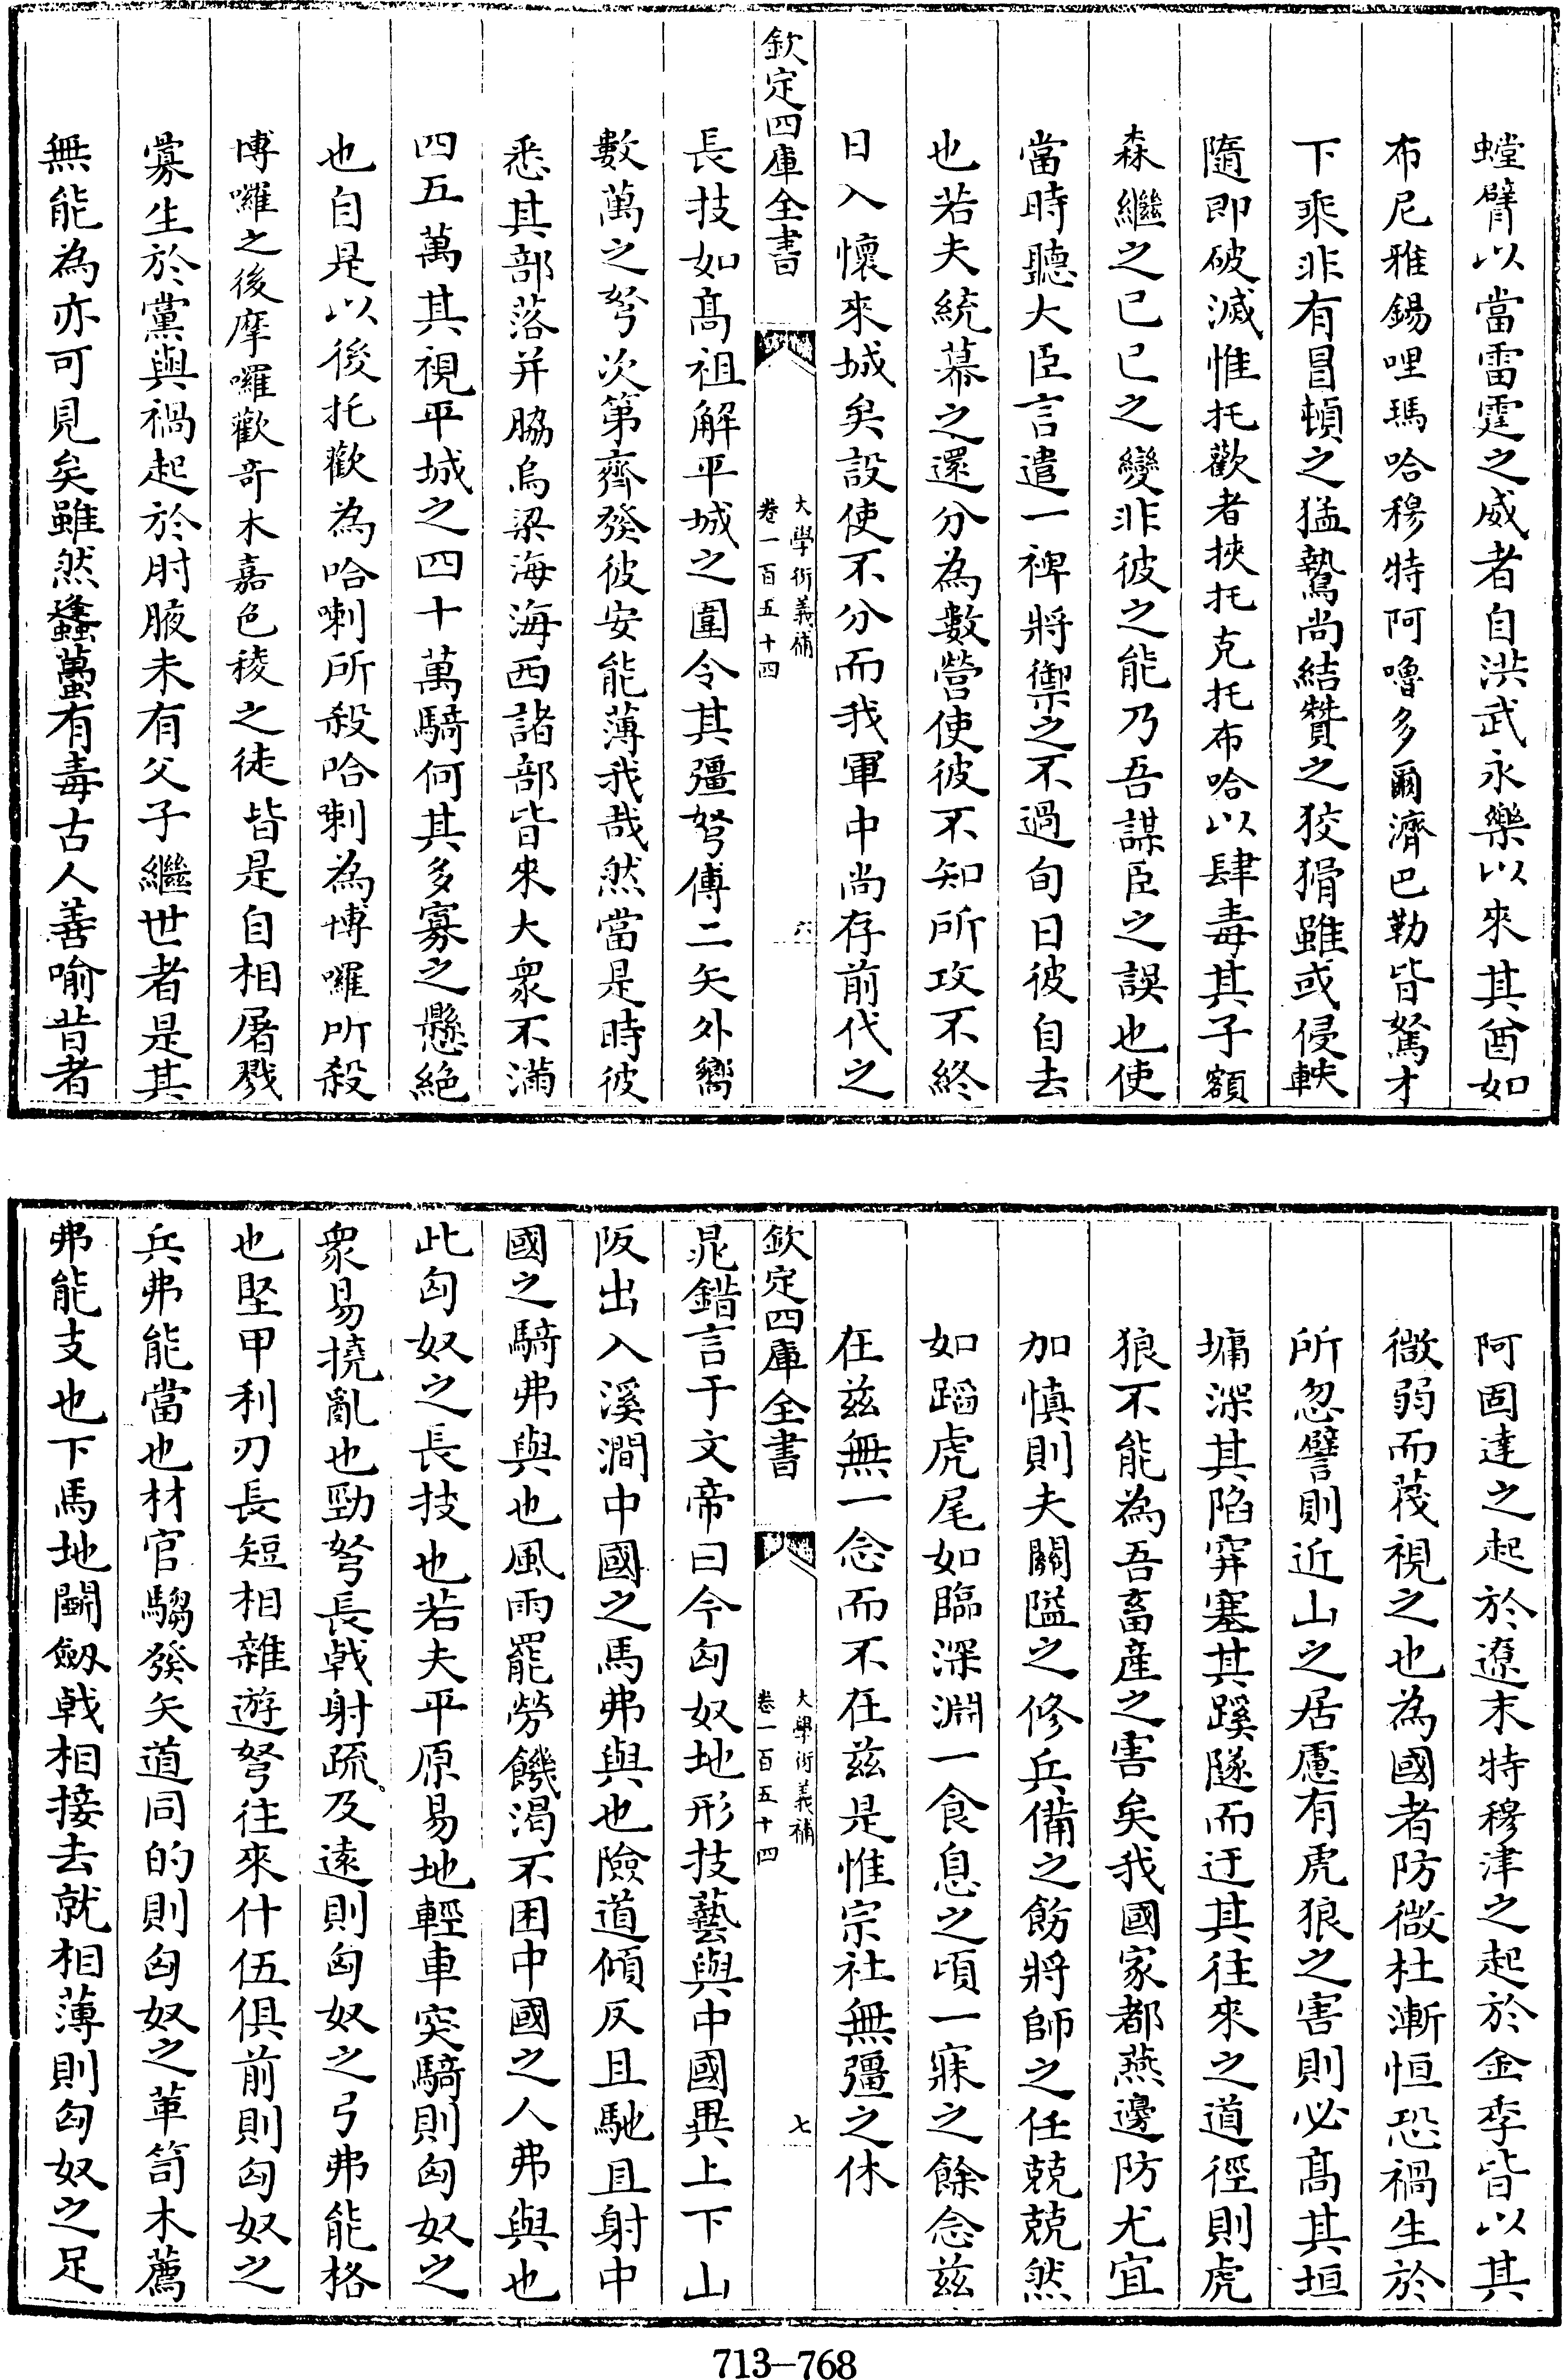 螳臂以當雷霆之威者自洪武永樂以來其酋如
布尼雅錫哩瑪哈穆特阿嚕多爾濟巴勒皆駑才
下乘非有冒頓之猛鷙尚結贊之狡猾雖或侵軼
隨即破滅惟托歡者挾托克托布哈以肆毒其子額
森繼之已巳之變非彼之能乃吾謀臣之誤也使
當時聽大臣言遣一禆將禦之不過旬日彼自去
也若夫統幕之還分為數營使彼不知所攻不終
日入懷來城矣設使不分而我軍中尚存前代之
欽定四庫全書
大學衍義補
卷一百五十四
六
長技如髙祖解平城之圍令其彊弩傅二矢外嚮
數萬之弩次第齊發彼安能薄我哉然當是時彼
悉其部落并脇烏梁海海西諸部皆來大衆不滿
四五萬其視平城之四十萬騎何其多寡之懸絶
也自是以後托歡為哈喇所殺哈喇為博囉所殺
博囉之後摩囉歡竒木嘉色稜之徒皆是自相屠戮
釁生於黨與禍起於肘腋未有父子繼世者是其
無能為亦可見矣雖然蠭蠆有毒古人善喻昔者
阿固達之起於遼末特穆津之起於金季皆以其
微弱而蔑視之也為國者防微杜漸恒恐禍生於
所忽譬則近山之居慮有虎狼之害則必髙其垣
墉深其陷穽塞其蹊隧而迂其往來之道徑則虎
狼不能為吾畜産之害矣我國家都燕邊防尤宜
加慎則夫關隘之修兵備之飭將帥之任兢兢然
如蹈虎尾如臨深淵一食息之頃一寐之餘念兹
在兹無一念而不在兹是惟宗社無彊之休
欽定四庫全書
大學衍義補
卷一百五十四
七
鼂錯言于文帝曰今匈奴地形技藝與中國異上下山
阪出入溪澗中國之馬弗與也險道傾仄且馳且射中
國之騎弗與也風雨罷勞饑渴不困中國之人弗與也
此匈奴之長技也若夫平原易地輕車突騎則匈奴之
衆易撓亂也勁弩長㦸射疏及逺則匈奴之弓弗能格
也堅甲利刃長短相雜遊弩往來什伍俱前則匈奴之
兵弗能當也材官騶發矢道同的則匈奴之革笥木薦
弗能支也下馬地鬬劔㦸相接去就相薄則匈奴之足
713-768